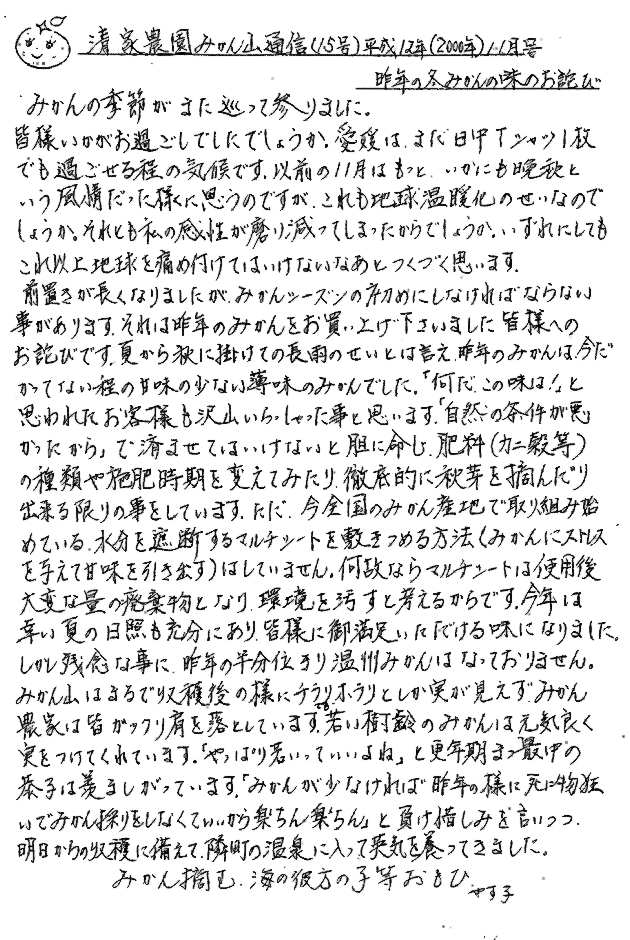 清家農園みかん山通信(15号)平成12年(2000年)11月号
昨年の冬みかんの味のお詫び
みかんの季節がまた巡って参りました。
皆様いかがお過ごしでしたでしょうか。愛媛は、まだ日中Tシャツ1枚
でも過ごせる程の気候です。以前の11月はもっと、いかにも晩秋と
いう風情だった様に思うのですが、これも地球温暖化のせいなので
しょうか。それとも私の感性が磨り減ってしまったからでしょうか。いずれにしても
これ以上地球を痛め付けてはいけないなあとつくづく思います。
前置きが長くなりましたが、みかんシーズンの初めにしなければならない
事があります。それは昨年のみかんをお買い上げ下さいました皆様への
お詫びです。夏から秋に掛けての長雨のせいとは言え、昨年のみかんは、今だ
かつてない程の甘味の少ない薄味のみかんでした。「何だ、この味は!」と
思われたお客様も沢山いらっしゃった事と思います。「自然の条件が悪
かったから」で済ませてはいけないと胆に命じ、肥料(カニ殻等)
の種類や施肥時期を変えてみたり、徹底的に秋芽を摘んだり
出来る限りの事をしています。ただ、今全国のみかん産地で取り組み始
めている、水分を遮断するマルチシートを敷きつめる方法(みかんにストレス
を与えて甘味を引き出す)はしていません。何故ならマルチシートは使用後
大変な量の廃棄物となり、環境を汚すと考えるからです。今年は
幸い夏の日照も充分にあり、皆様に御満足いただける味になりました。
しかし残念な事に、昨年の半分位きり温州みかんはなっておりません。
みかん山はまるで収穫後の様にチラリホラリとしか実が見えず、みかん
農家は皆ガックリ肩を落としています。でも若い樹齢のみかんは元気良く
実をつけてくれています。「やっぱり若いっていいよね」と更年期まっ最中の
恭子は羨ましがっています。「みかんが少なければ昨年の様に死に物狂
いでみかん採りをしなくていいから楽ちん楽ちん」と負け惜しみを言いつつ、
明日からの収穫に備えて、隣町の温泉に入って英気を養ってきました。
みかん摘む、海の彼方の子等おもひ
やす子